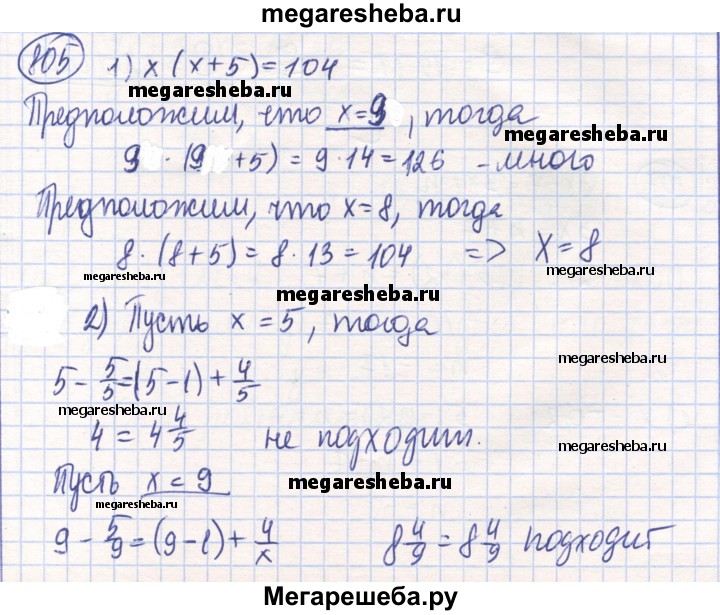 megaresheba.ru
805 1) x (x+5)=104
megaresheba.ru
Предположим, что x=9, тогда
megaresheba.ru
9 · (9 +5) = 9·14=126 - много
Предположим, что x=8, тогда
8·(8+5)=8·13=104 => X=8
megaresheba.ru megaresheba.ru
megaresheba.ru
2) Пусть x=5, тогда
megaresheba.ru
5 - 5/5 = (5-1) + 4/5
megaresheba.ru
4 = 4 4/5 не подходит.
megaresheba.ru
Пусть x = 9
megaresheba.ru
megaresheba.ru
9 - 5/9 = (9-1) + 4/x 8 4/9 = 8 4/9 подходит
Мегарешеба.ру